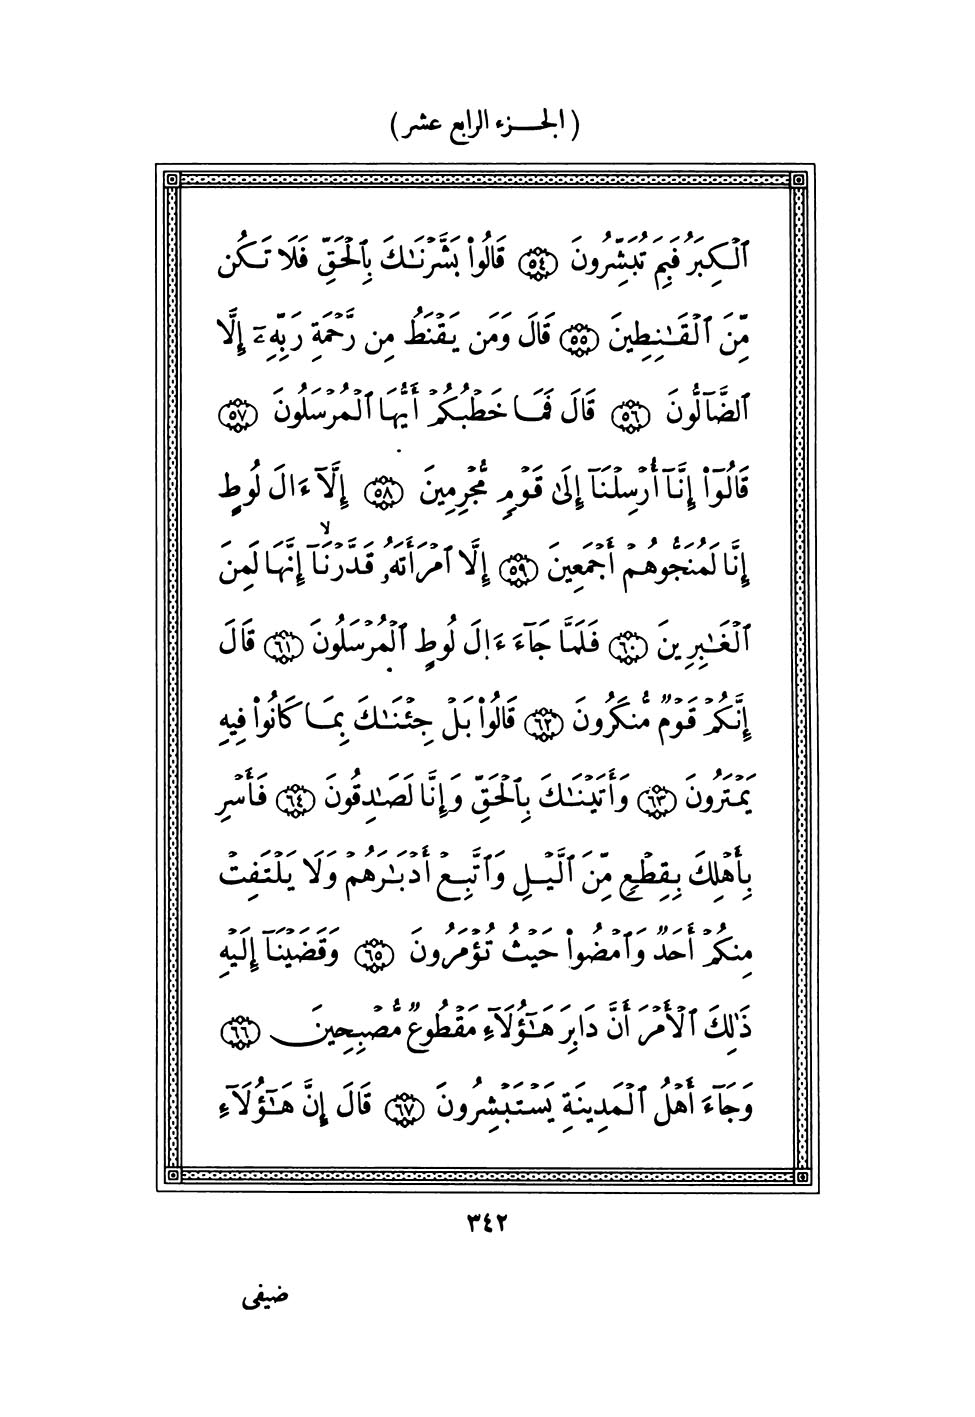 ( الجــزء الرابع عشر )
ٱلْكِبَرُ فَبِمَ تُبَشِّرُونَ ٥٤ قَالُوا۟ بَشَّرْنَـٰكَ بِٱلْحَقِّ فَلَا تَكُن
مِّنَ ٱلْقَـٰنِطِينَ ٥٥ قَالَ وَمَن يَقْنَطُ مِن رَّحْمَةِ رَبِّهِۦٓ إِلَّا
ٱلضَّآلُّونَ ٥٦ قَالَ فَمَا خَطْبُكُمْ أَيُّهَا ٱلْمُرْسَلُونَ ٥٧
قَالُوٓا۟ إِنَّآ أُرْسِلْنَآ إِلَىٰ قَوْمٍ مُّجْرِمِينَ ٥٨ إِلَّآ ءَالَ لُوطٍ
إِنَّا لَمُنَجُّوهُمْ أَجْمَعِينَ ٥٩ إِلَّا ٱمْرَأَتَهُۥ قَدَّرْنَآ ۙ إِنَّهَا لَمِنَ
ٱلْغَـٰبِرِينَ ٦٠ فَلَمَّا جَآءَ ءَالَ لُوطٍ ٱلْمُرْسَلُونَ ٦١ قَالَ
إِنَّكُمْ قَوْمٌ مُّنكَرُونَ ٦٢ قَالُوا۟ بَلْ جِئْنَـٰكَ بِمَا كَانُوا۟ فِيهِ
يَمْتَرُونَ ٦٣ وَأَتَيْنَـٰكَ بِٱلْحَقِّ وَإِنَّا لَصَـٰدِقُونَ ٦٤ فَأَسْرِ
بِأَهْلِكَ بِقِطْعٍ مِّنَ ٱلَّيْلِ وَٱتَّبِعْ أَدْبَـٰرَهُمْ وَلَا يَلْتَفِتْ
مِنكُمْ أَحَدٌ وَٱمْضُوا۟ حَيْثُ تُؤْمَرُونَ ٦٥ وَقَضَيْنَآ إِلَيْهِ
ذَٰلِكَ ٱلْأَمْرَ أَنَّ دَابِرَ هَـٰٓؤُلَآءِ مَقْطُوعٌ مُّصْبِحِينَ ٦٦
وَجَآءَ أَهْلُ ٱلْمَدِينَةِ يَسْتَبْشِرُونَ ٦٧ قَالَ إِنَّ هَـٰٓؤُلَآءِ
٣٤٢
ضيفى